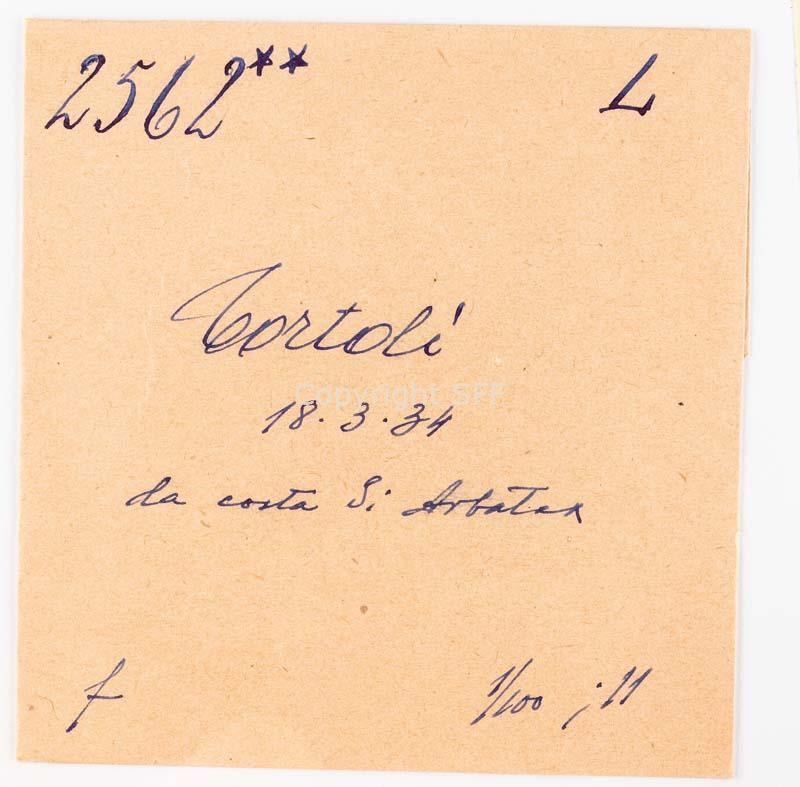 2562** L
Tortolì
Copyright SFF
18.3.34
la costa di Arbatax
f 1/100 ; 11